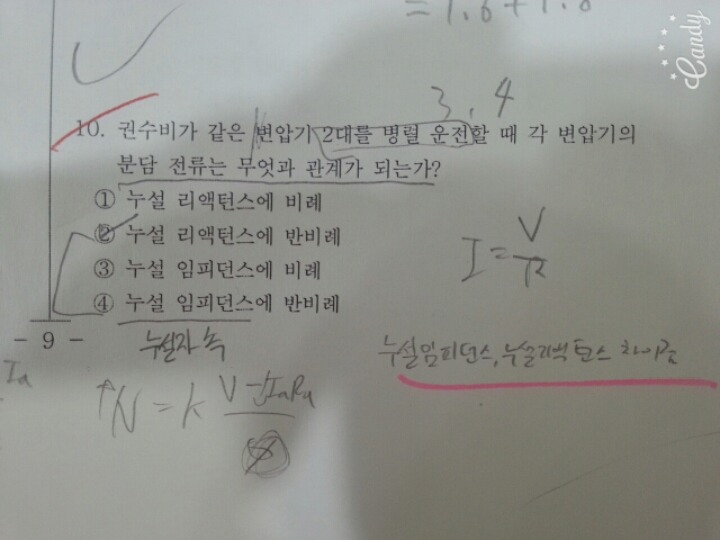 = 1.6 + 1.8
Candy
3, 4
10. 권수비가 같은 변압기 2대를 병렬 운전할 때 각 변압기의
분담 전류는 무엇과 관계가 되는가?
① 누설 리액턴스에 비례
② 누설 리액턴스에 반비례
③ 누설 임피던스에 비례
④ 누설 임피던스에 반비례
I = V/R
- 9 -
누설자속
누설임피던스, 누설리액턴스 차이점
Ia
↑N = K (V - IaRa)/Ø